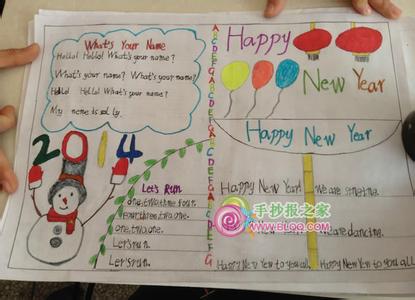 What's Your Name
Hello! Hello! What's your name?
What's your name? What's your name?
Hello! Hello! What's your name?
My name is
2014
Let's Run
one, two, three, four.
Four, three, two, one.
one, two, three, four.
Let's run.
Let's run.
ABCDEFGABCDEFGABCDEFG
Happy
New Year
Happy New Year
Happy New Year! We are singing.
New Year! We are dancing.
Happy New Year to you all, Happy New Year to you all.
手抄报之家
WWW.BLQQ.COM